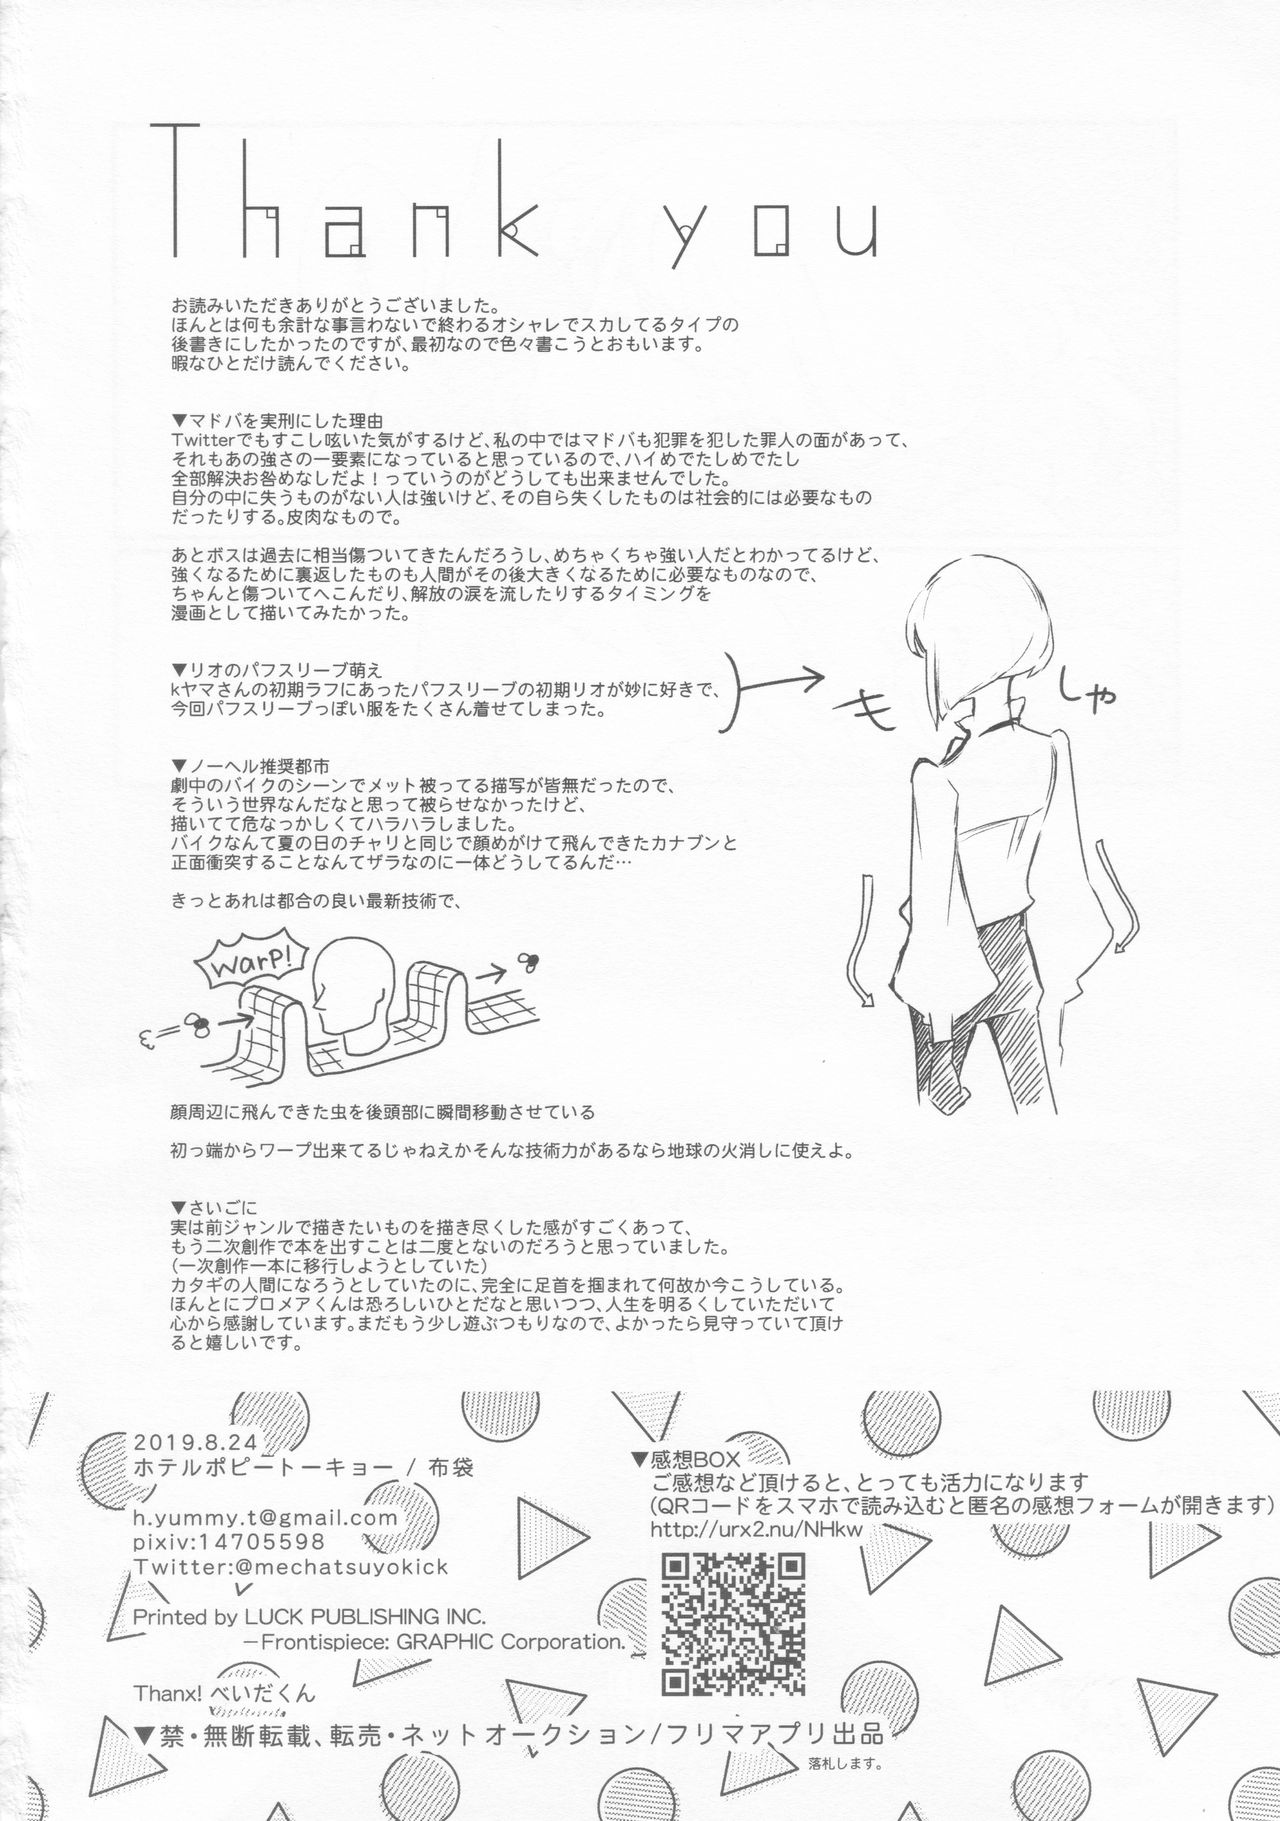 Thank you
お読みいただきありがとうございました。
ほんとは何も余計な事言わないで終わるオシャレでスカしてるタイプの
後書きにしたかったのですが、最初なので色々書こうとおもいます。
暇なひとだけ読んでください。
▼マドバを実刑にした理由
Twitterでもすこし呟いた気がするけど、私の中ではマドバも犯罪を犯した罪人の面があって、
それもあの強さの一要素になっていると思っているので、ハイめでたしめでたし
全部解決お咎めなしだよ！っていうのがどうしても出来ませんでした。
自分の中に失うものがない人は強いけど、その自ら失くしたものは社会的には必要なもの
だったりする。皮肉なもので。
あとボスは過去に相当傷ついてきたんだろうし、めちゃくちゃ強い人だとわかってるけど、
強くなるために裏返したものも人間がその後大きくなるために必要なものなので、
ちゃんと傷ついてへこんだり、解放の涙を流したりするタイミングを
漫画として描いてみたかった。
▼リオのパフスリーブ萌え
kヤマさんの初期ラフにあったパフスリーブの初期リオが妙に好きで、
今回パフスリーブっぽい服をたくさん着せてしまった。
もしゃ
▼ノーヘル推奨都市
劇中のバイクのシーンでメット被ってる描写が皆無だったので、
そういう世界なんだなと思って被らせなかったけど、
描いてて危なっかしくてハラハラしました。
バイクなんて夏の日のチャリと同じで顔めがけて飛んできたカナブンと
正面衝突することなんてザラなのに一体どうしてるんだ…
きっとあれは都合の良い最新技術で、
warp!
顔周辺に飛んできた虫を後頭部に瞬間移動させている
初っ端からワープ出来てるじゃねえかそんな技術力があるなら地球の火消しに使えよ。
▼さいごに
実は前ジャンルで描きたいものを描き尽くした感がすごくあって、
もう二次創作で本を出すことは二度とないのだろうと思っていました。
（一次創作一本に移行しようとしていた）
カタギの人間になろうとしていたのに、完全に足首を掴まれて何故か今こうしている。
ほんとにプロメアくんは恐ろしいひとだなと思いつつ、人生を明るくしていただいて
心から感謝しています。まだもう少し遊ぶつもりなので、よかったら見守っていて頂け
ると嬉しいです。
2019.8.24
ホテルポピートーキョー / 布袋
h.yummy.t@gmail.com
pixiv:14705598
Twitter:@mechatsuyokick
Printed by LUCK PUBLISHING INC.
－Frontispiece: GRAPHIC Corporation.
Thanx! べいだくん
▼感想BOX
ご感想など頂けると、とっても活力になります
（QRコードをスマホで読み込むと匿名の感想フォームが開きます）
http://urx2.nu/NHkw
▼禁・無断転載、転売・ネットオークション/フリマアプリ出品
落札します。